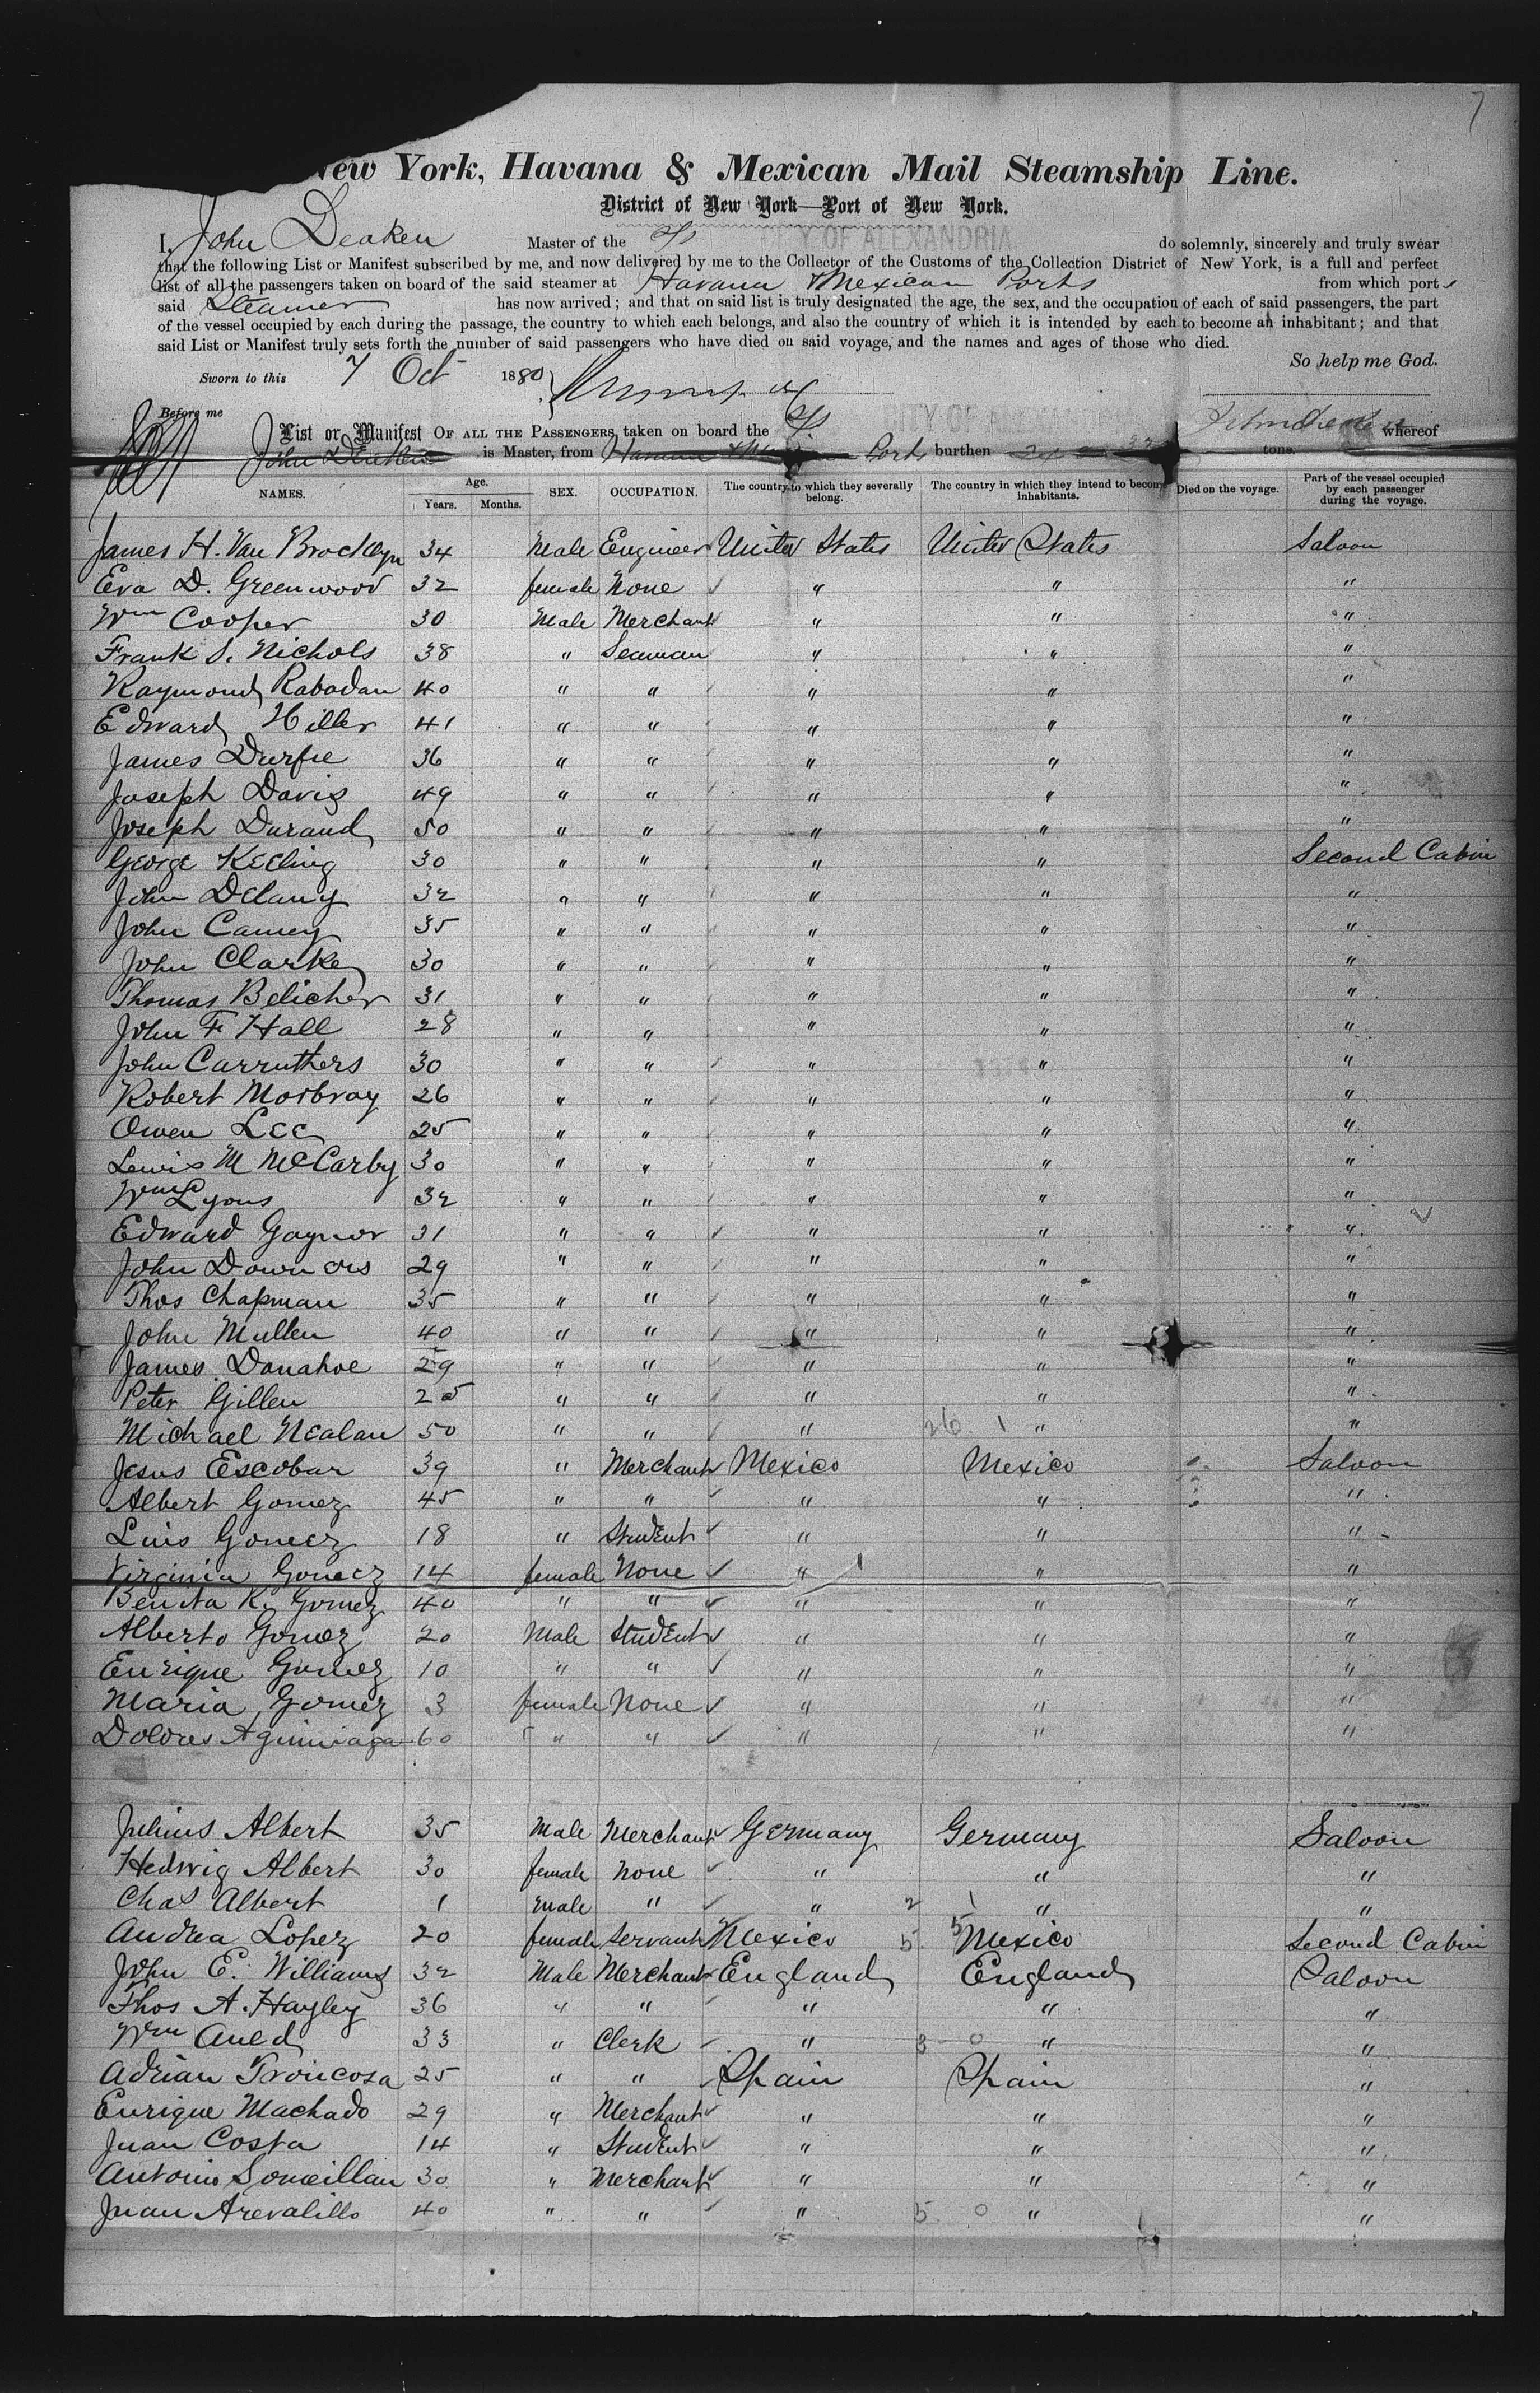 7
New York, Havana & Mexican Mail Steamship Line.
District of New York—Port of New York.
I, John Deaken Master of the SS CITY OF ALEXANDRIA do solemnly, sincerely and truly swear
that the following List or Manifest subscribed by me, and now delivered by me to the Collector of the Customs of the Collection District of New York, is a full and perfect
list of all the passengers taken on board of the said steamer at Havana & Mexican Ports from which port s
said Steamer has now arrived; and that on said list is truly designated the age, the sex, and the occupation of each of said passengers, the part
of the vessel occupied by each during the passage, the country to which each belongs, and also the country of which it is intended by each to become an inhabitant; and that
said List or Manifest truly sets forth the number of said passengers who have died on said voyage, and the names and ages of those who died.
So help me God.
Sworn to this 7 Oct 1880
Before me
List or Manifest OF ALL THE PASSENGERS taken on board the SS CITY OF whereof
John Deaken is Master, from Havana & Ports burthen tons.
NAMES. Age. Years. Months. SEX. OCCUPATION. The country to which they severally belong. The country in which they intend to become inhabitants. Died on the voyage. Part of the vessel occupied by each passenger during the voyage.
James H. Van Brocklyn 34 Male Engineer United States United States Saloon
Eva D. Greenwood 32 female None " " "
Wm Cooper 30 Male Merchant " " "
Frank S. Nichols 38 " Seaman " " "
Raymond Rabadan 40 " " " " "
Edward Hiller 41 " " " " "
James Durfie 36 " " " " "
Joseph Davis 49 " " " " "
Joseph Durand 50 " " " " "
George Keeling 30 " " " " Second Cabin
John Delany 32 " " " " "
John Camey 35 " " " " "
John Clarke 30 " " " " "
Thomas Belicher 31 " " " " "
John F Hall 28 " " " " "
John Carruthers 30 " " " " "
Robert Morbray 26 " " " " "
Owen Lee 25 " " " " "
Lewis M McCarby 30 " " " " "
Wm Lyons 32 " " " " "
Edward Gaynor 31 " " " " "
John Downers 29 " " " " "
Thos Chapman 35 " " " " "
John Mullen 40 " " " " "
James Donahoe 29 " " " " "
Peter Gillen 25 " " " " "
Michael Nealan 50 " " " 26 1 " "
Jesus Escobar 39 " Merchant Mexico Mexico Saloon
Albert Gomez 45 " " " " "
Luis Gomez 18 " Student " " "
Virginia Gomez 14 female None " " "
Benita K. Gomez 40 " " " " "
Alberto Gomez 20 Male Student " " "
Enrique Gomez 10 " " " " "
Maria Gomez 3 female None " " "
Dolores Aguiniaga 60 " " " " "
Julius Albert 35 Male Merchant Germany Germany Saloon
Hedwig Albert 30 female none " " "
Chas Albert 1 male " " 2 1 " "
Andrea Lopez 20 female Servant Mexico 5 5 Mexico Second Cabin
John E. Williams 32 Male Merchant England England Saloon
Thos A. Hayley 36 " " " " "
Wm Aued 33 " Clerk " 3 0 " "
Adrian Troncosa 25 " " Spain Spain "
Enrique Machado 29 " Merchant " " "
Juan Costa 14 " Student " " "
Antonio Someillan 30 " Merchant " " "
Juan Arevalillo 40 " " " 5 0 " "